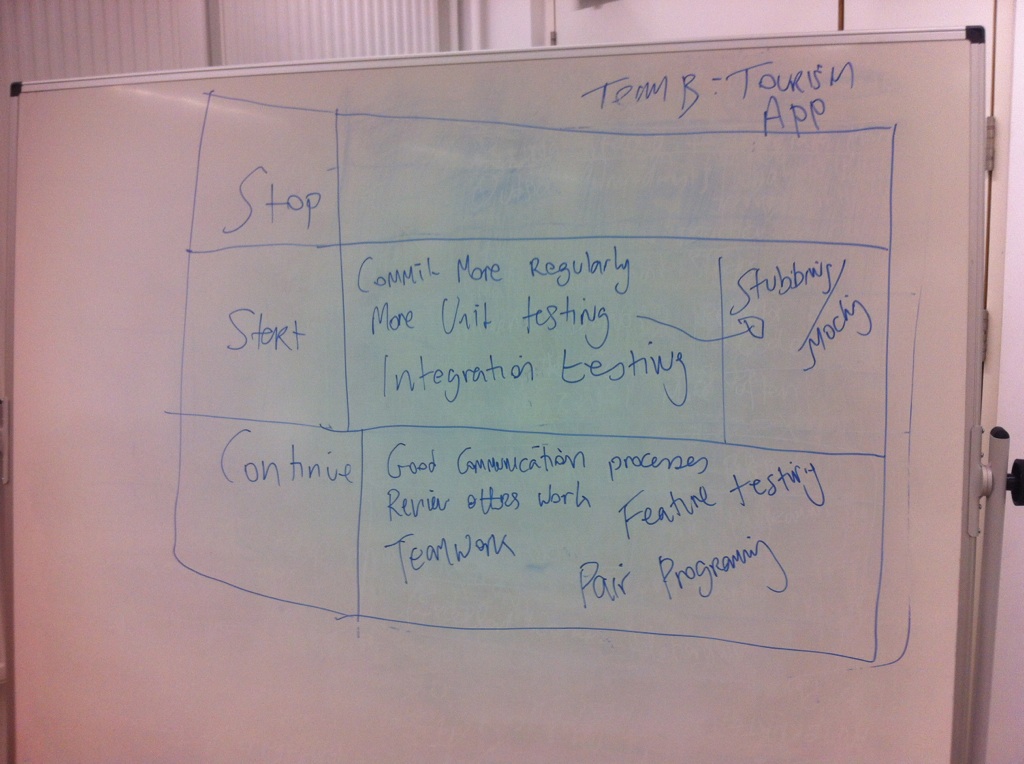 Team B: Tourism
App
Stop
Start
Commit More Regularly
More Unit testing
Integration testing
Stubbing/
Mocking
Continue
Good Communication processes
Review others work
Teamwork
Feature testing
Pair Programing